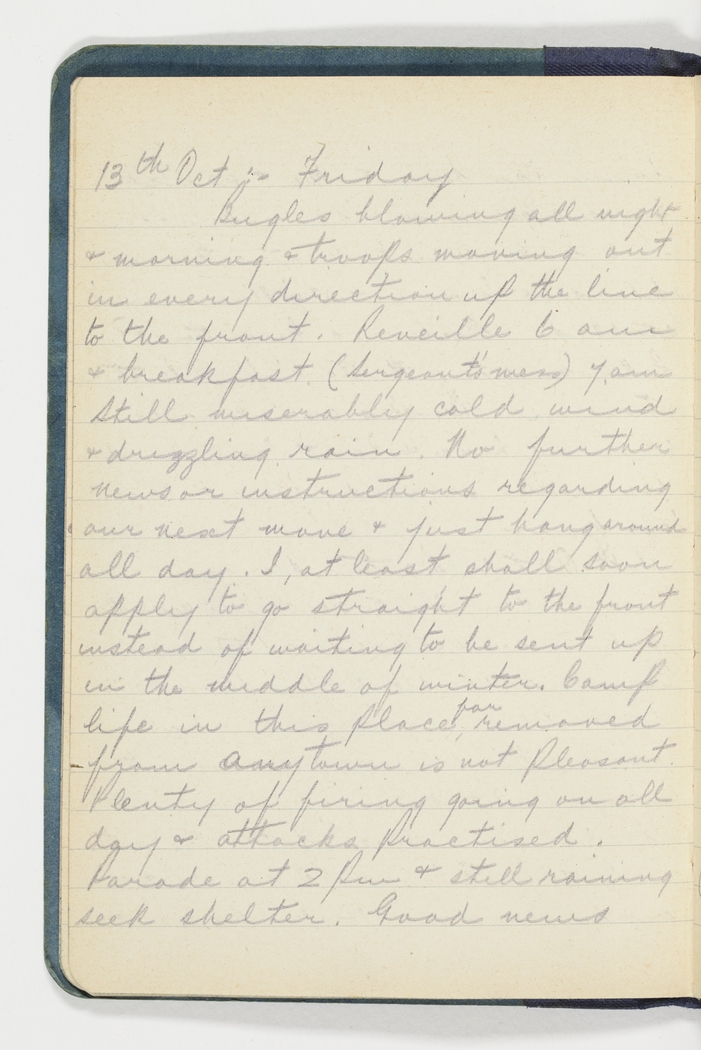 13th Oct :- Friday
Bugles blowing all night
& morning & troops moving out
in every direction up the line
to the front. Reveille 6 am
& breakfast (Sergeants' mess) 7 am
Still miserably cold wind
& drizzling rain. No further
news or instructions regarding
our next move & just hang around
all day. I, at least shall soon
apply to go straight to the front
instead of waiting to be sent up
in the middle of winter. Camp
life in this place, far removed
from any town is not pleasant.
Plenty of firing going on all
day & attacks practised.
Parade at 2 pm & still raining
seek shelter. Good news